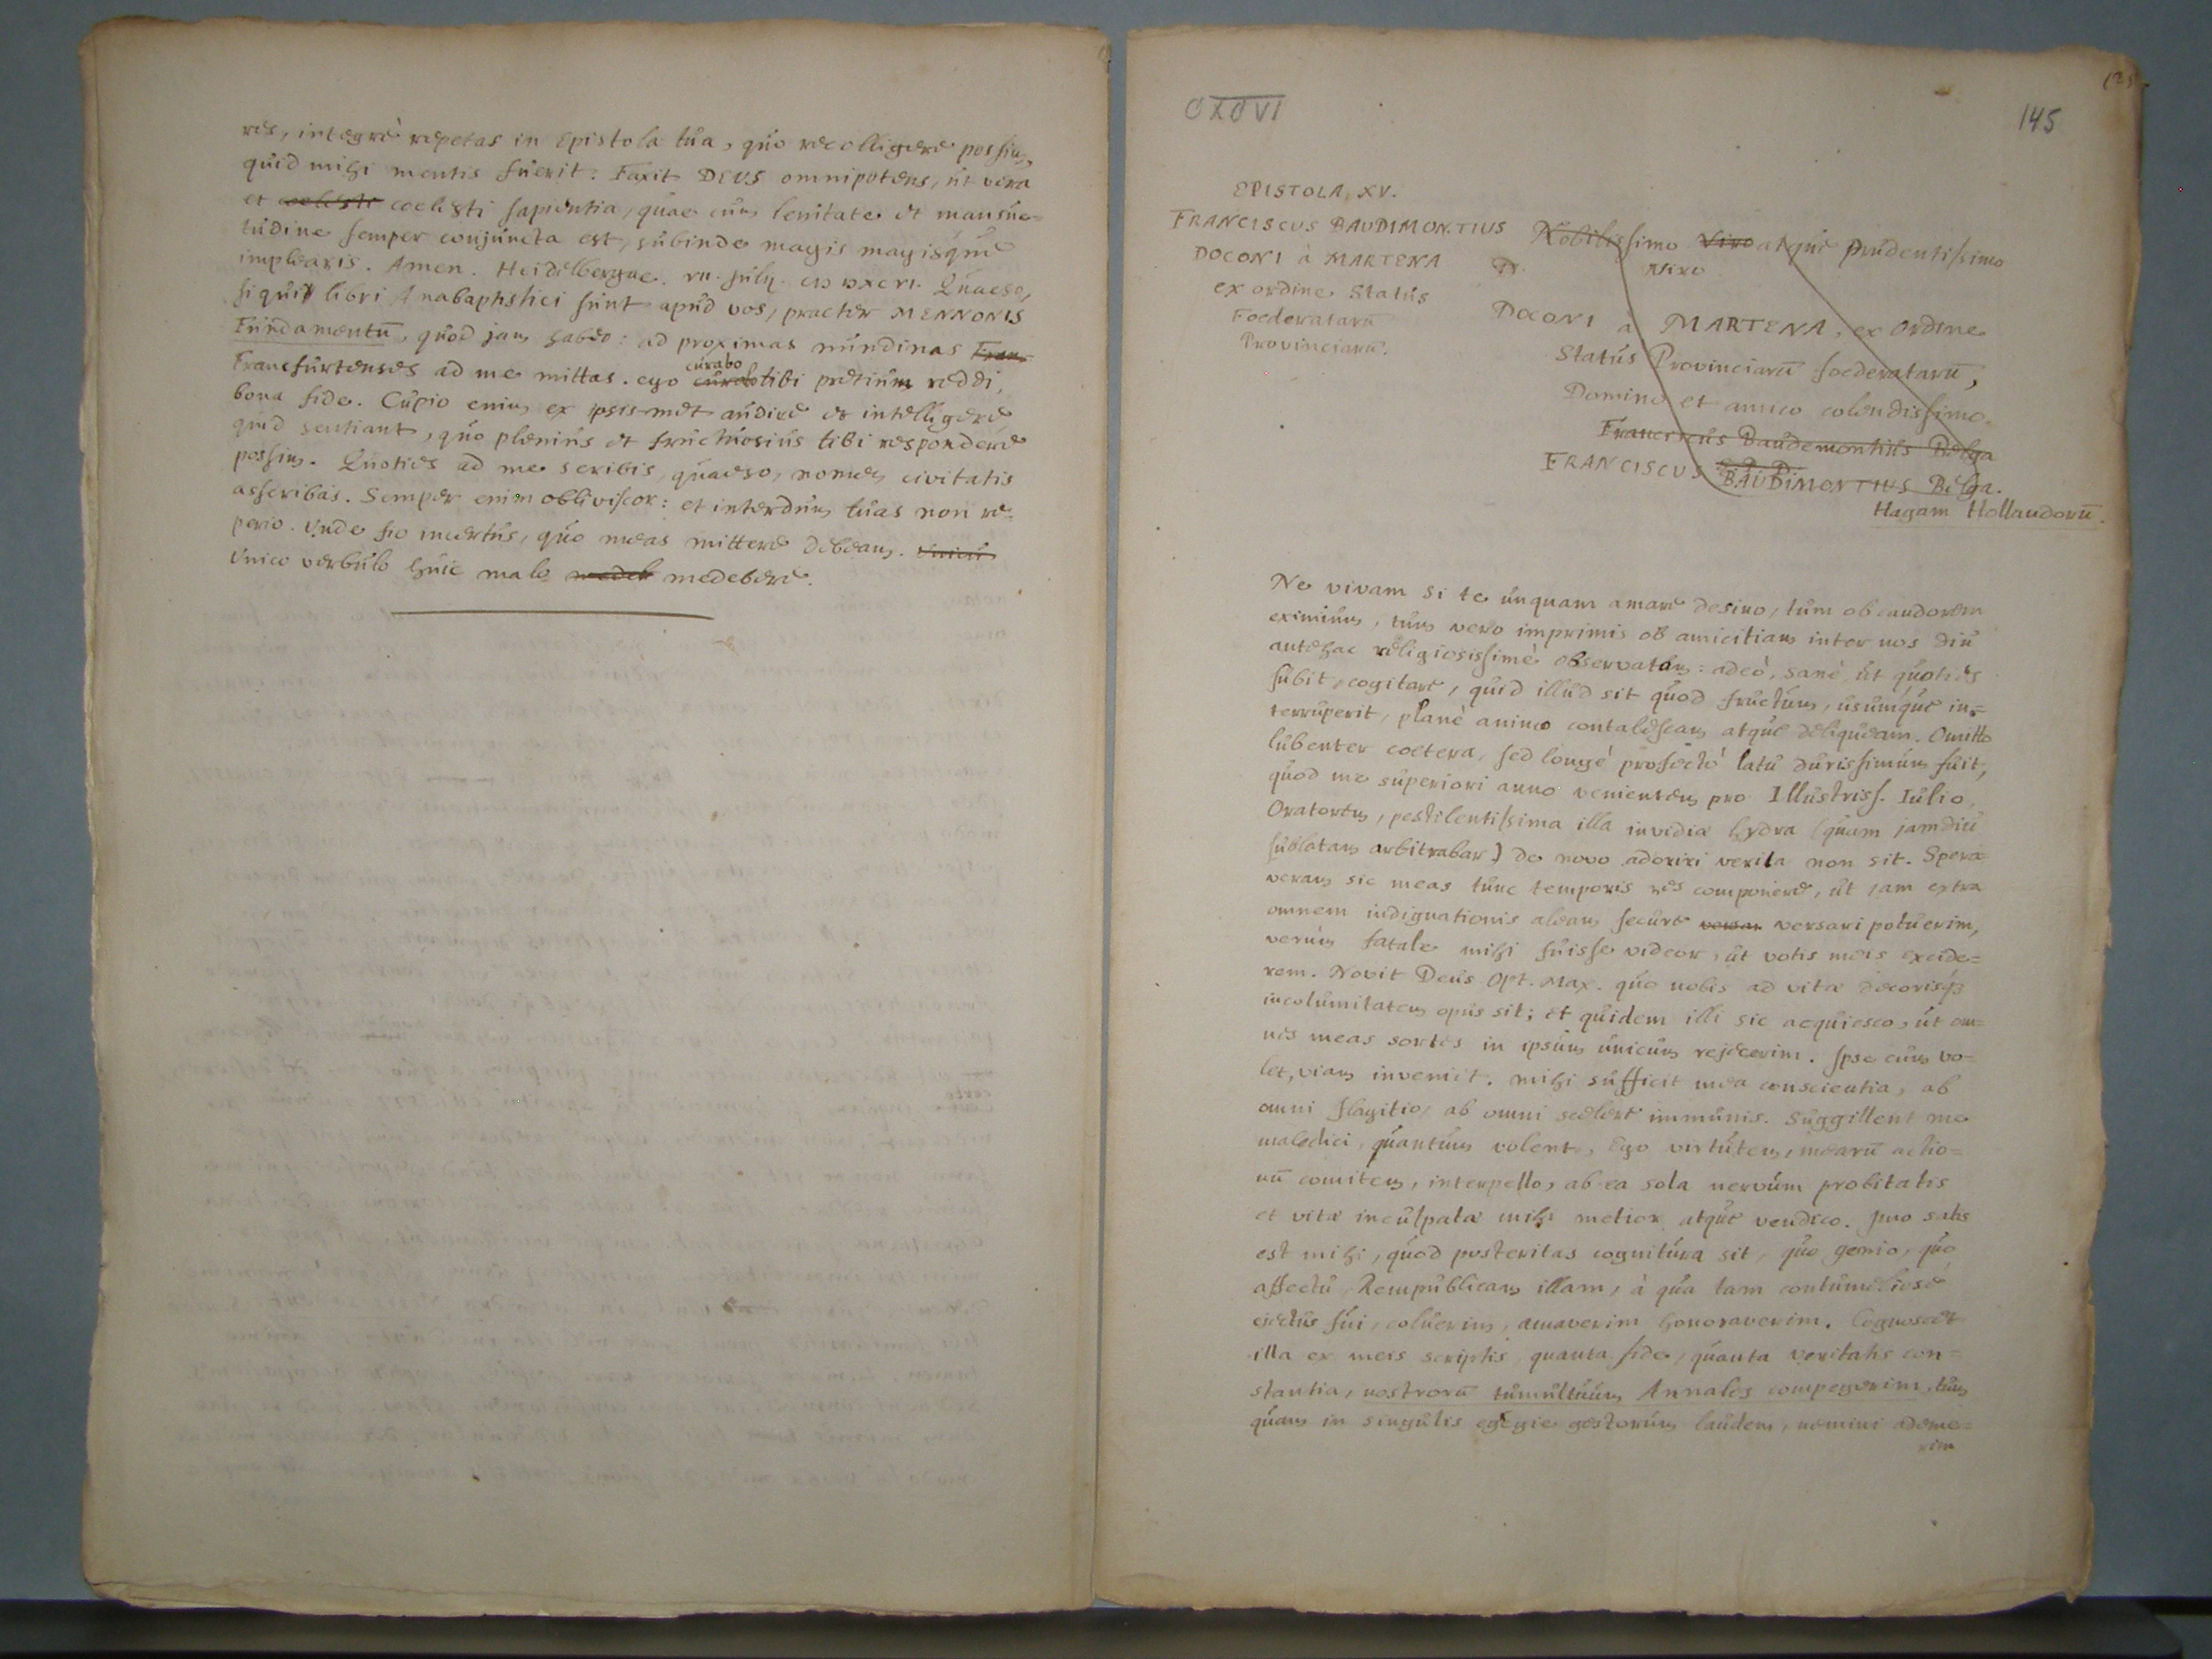 res, integrè repetas in Epistola tua, quo recolligere possim,
quid mihi mentis fuerit: Faxit DEUS omnipotens, ut vera
et coelesti coelesti sapientia, quae cum lenitate et mansue=
tudine semper conjuncta est, subinde magis magisque
implearis. Amen. Heidelbergae. Quaeso,
si qui libri Anabaptistici sunt apud vos, praeter MENNONIS
Fundamentū, quod jam habeo: ad proximas nundinas Fran
Francfurtenses ad me mittas. ego curabo tibi pretium reddi,
bona fide. Cupio enim ex ipsismet audire et intelligere
quid sentiant, quo plenius et fructuosius tibi respondere
possim. Quoties ad me scribis, quaeso, nomen civitatis
asscribas. Semper enim obliviscor: et interdum tuas non re=
perio. Unde fio incertus, quo meas mittere debeam.
Unico verbulo huic malo medeb medebere.
CXCVI
145
EPISTOLA, XV.
FRANCISCUS BAUDIMONTIUS
DOCONI à MARTENA
ex ordine Status
Foederatarū
Provinciarū.
Nobilissimo Viro atque prudentissimo
D. Viro
DOCONI à MARTENA, ex Ordine
Status Provinciarū foederatarū,
Domino et amico colendissimo.
Franciscus Baudemontius Belga
FRANCISCUS BAUDIMONTIUS Belga.
Hagam Hollandorū.
Ne vivam si te unquam amare desino, tum ob candorem
eximium, tum vero imprimis ob amicitiam inter nos diu
antehac religiosissimè observatam: adeò, sanè, ut quoties
subit, cogitare, quid illud sit quod fructum, usumque in=
terruperit, planè animo contabescam atque deliqueam. Omitto
lubenter coetera, sed longè profectò latu durissimum fuit,
quod me superiori anno venientem pro Illustriss. Iulio,
Oratorem, pestilentissima illa invidiae hydra (quam jamdiu
sublatam arbitrabar) de novo adoriri verita non sit. Spera=
veram sic meas tunc temporis res componere, ut jam extra
omnem indignationis aleam secure versar versari potuerim,
verùm fatale mihi fuisse videor, ut votis meis excide=
rem. Novit Deus Opt. Max. quo nobis ad vitae decorisq3
incolumitatem opus sit; et quidem illi sic acquiesco, ut om=
nes meas sortes in ipsum unicum rejecerim. Ipse cum vo=
let, viam inveniet. mihi sufficit mea conscientia, ab
omni flagitio, ab omni scelere immunis. Suggillent me
maledici, quantum volent, Ego virtutem, mearū actio=
nū comitem, interpello, ab ea sola nervum probitatis
et vitae inculpatae mihi metior atque vendico. Imo satis
est mihi, quod posteritas cognitura sit, quo genio, quo
affectu, Rempublicam illam, à qua tam contumeliose
ejectus fui, coluerim, amaverim honoraverim. Cognoscet
illa ex meis scriptis, quanta fide, quanta veritatis con=
stantia, nostrorū tumultuum Annales compegerim, tum
quam in singulis egregie gestorum laudem, nemini deme=
rim